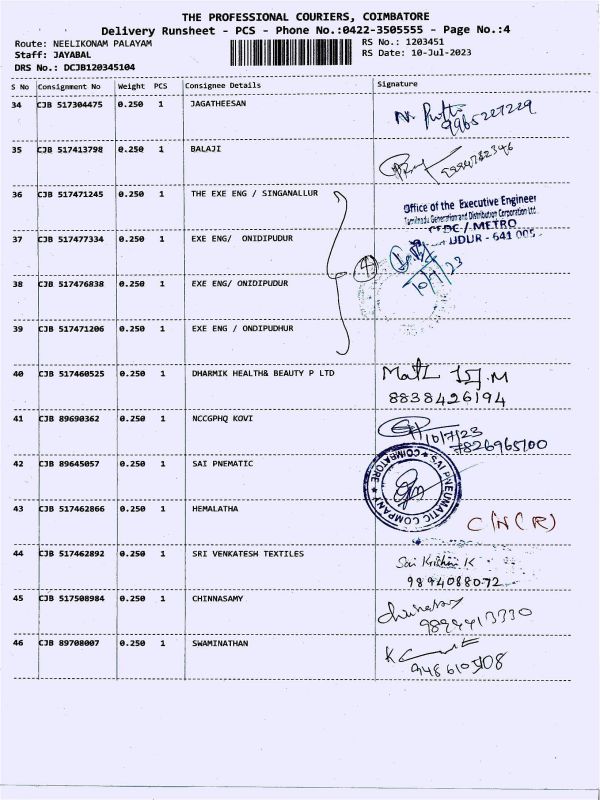 THE PROFESSIONAL COURIERS, COIMBATORE
Delivery Runsheet - PCS - Phone No.:0422-3505555 - Page No.:4
Route: NEELIKONAM PALAYAM
Staff: JAYABAL
DRS No.: DCJB120345104
RS No.: 1203451
RS Date: 10-Jul-2023
S No Consignment No Weight PCS Consignee Details Signature
34 CJB 517304475 0.250 1 JAGATHEESAN
9965227229
35 CJB 517413798 0.250 1 BALAJI
36 CJB 517471245 0.250 1 THE EXE ENG / SINGANALLUR
Office of the Executive Engineer
Tamilnadu Generation and Distribution Corporation Ltd
/ METRO
UDUR - 641 005
37 CJB 517477334 0.250 1 EXE ENG/ ONIDIPUDUR
4
10/7/23
38 CJB 517476838 0.250 1 EXE ENG/ ONIDIPUDUR
39 CJB 517471206 0.250 1 EXE ENG / ONDIPUDHUR
40 CJB 517460525 0.250 1 DHARMIK HEALTH& BEAUTY P LTD
8838426194
41 CJB 89690362 0.250 1 NCCGPHQ KOVI
10/7/23
7826965100
42 CJB 89645057 0.250 1 SAI PNEMATIC
PNEUMATIC COMPANY
COIMBATORE
43 CJB 517462866 0.250 1 HEMALATHA
C/N(R)
44 CJB 517462892 0.250 1 SRI VENKATESH TEXTILES
Sai Krishna K
9894088072
45 CJB 517508984 0.250 1 CHINNASAMY
Chinnasamy
9894413330
46 CJB 89708007 0.250 1 SWAMINATHAN